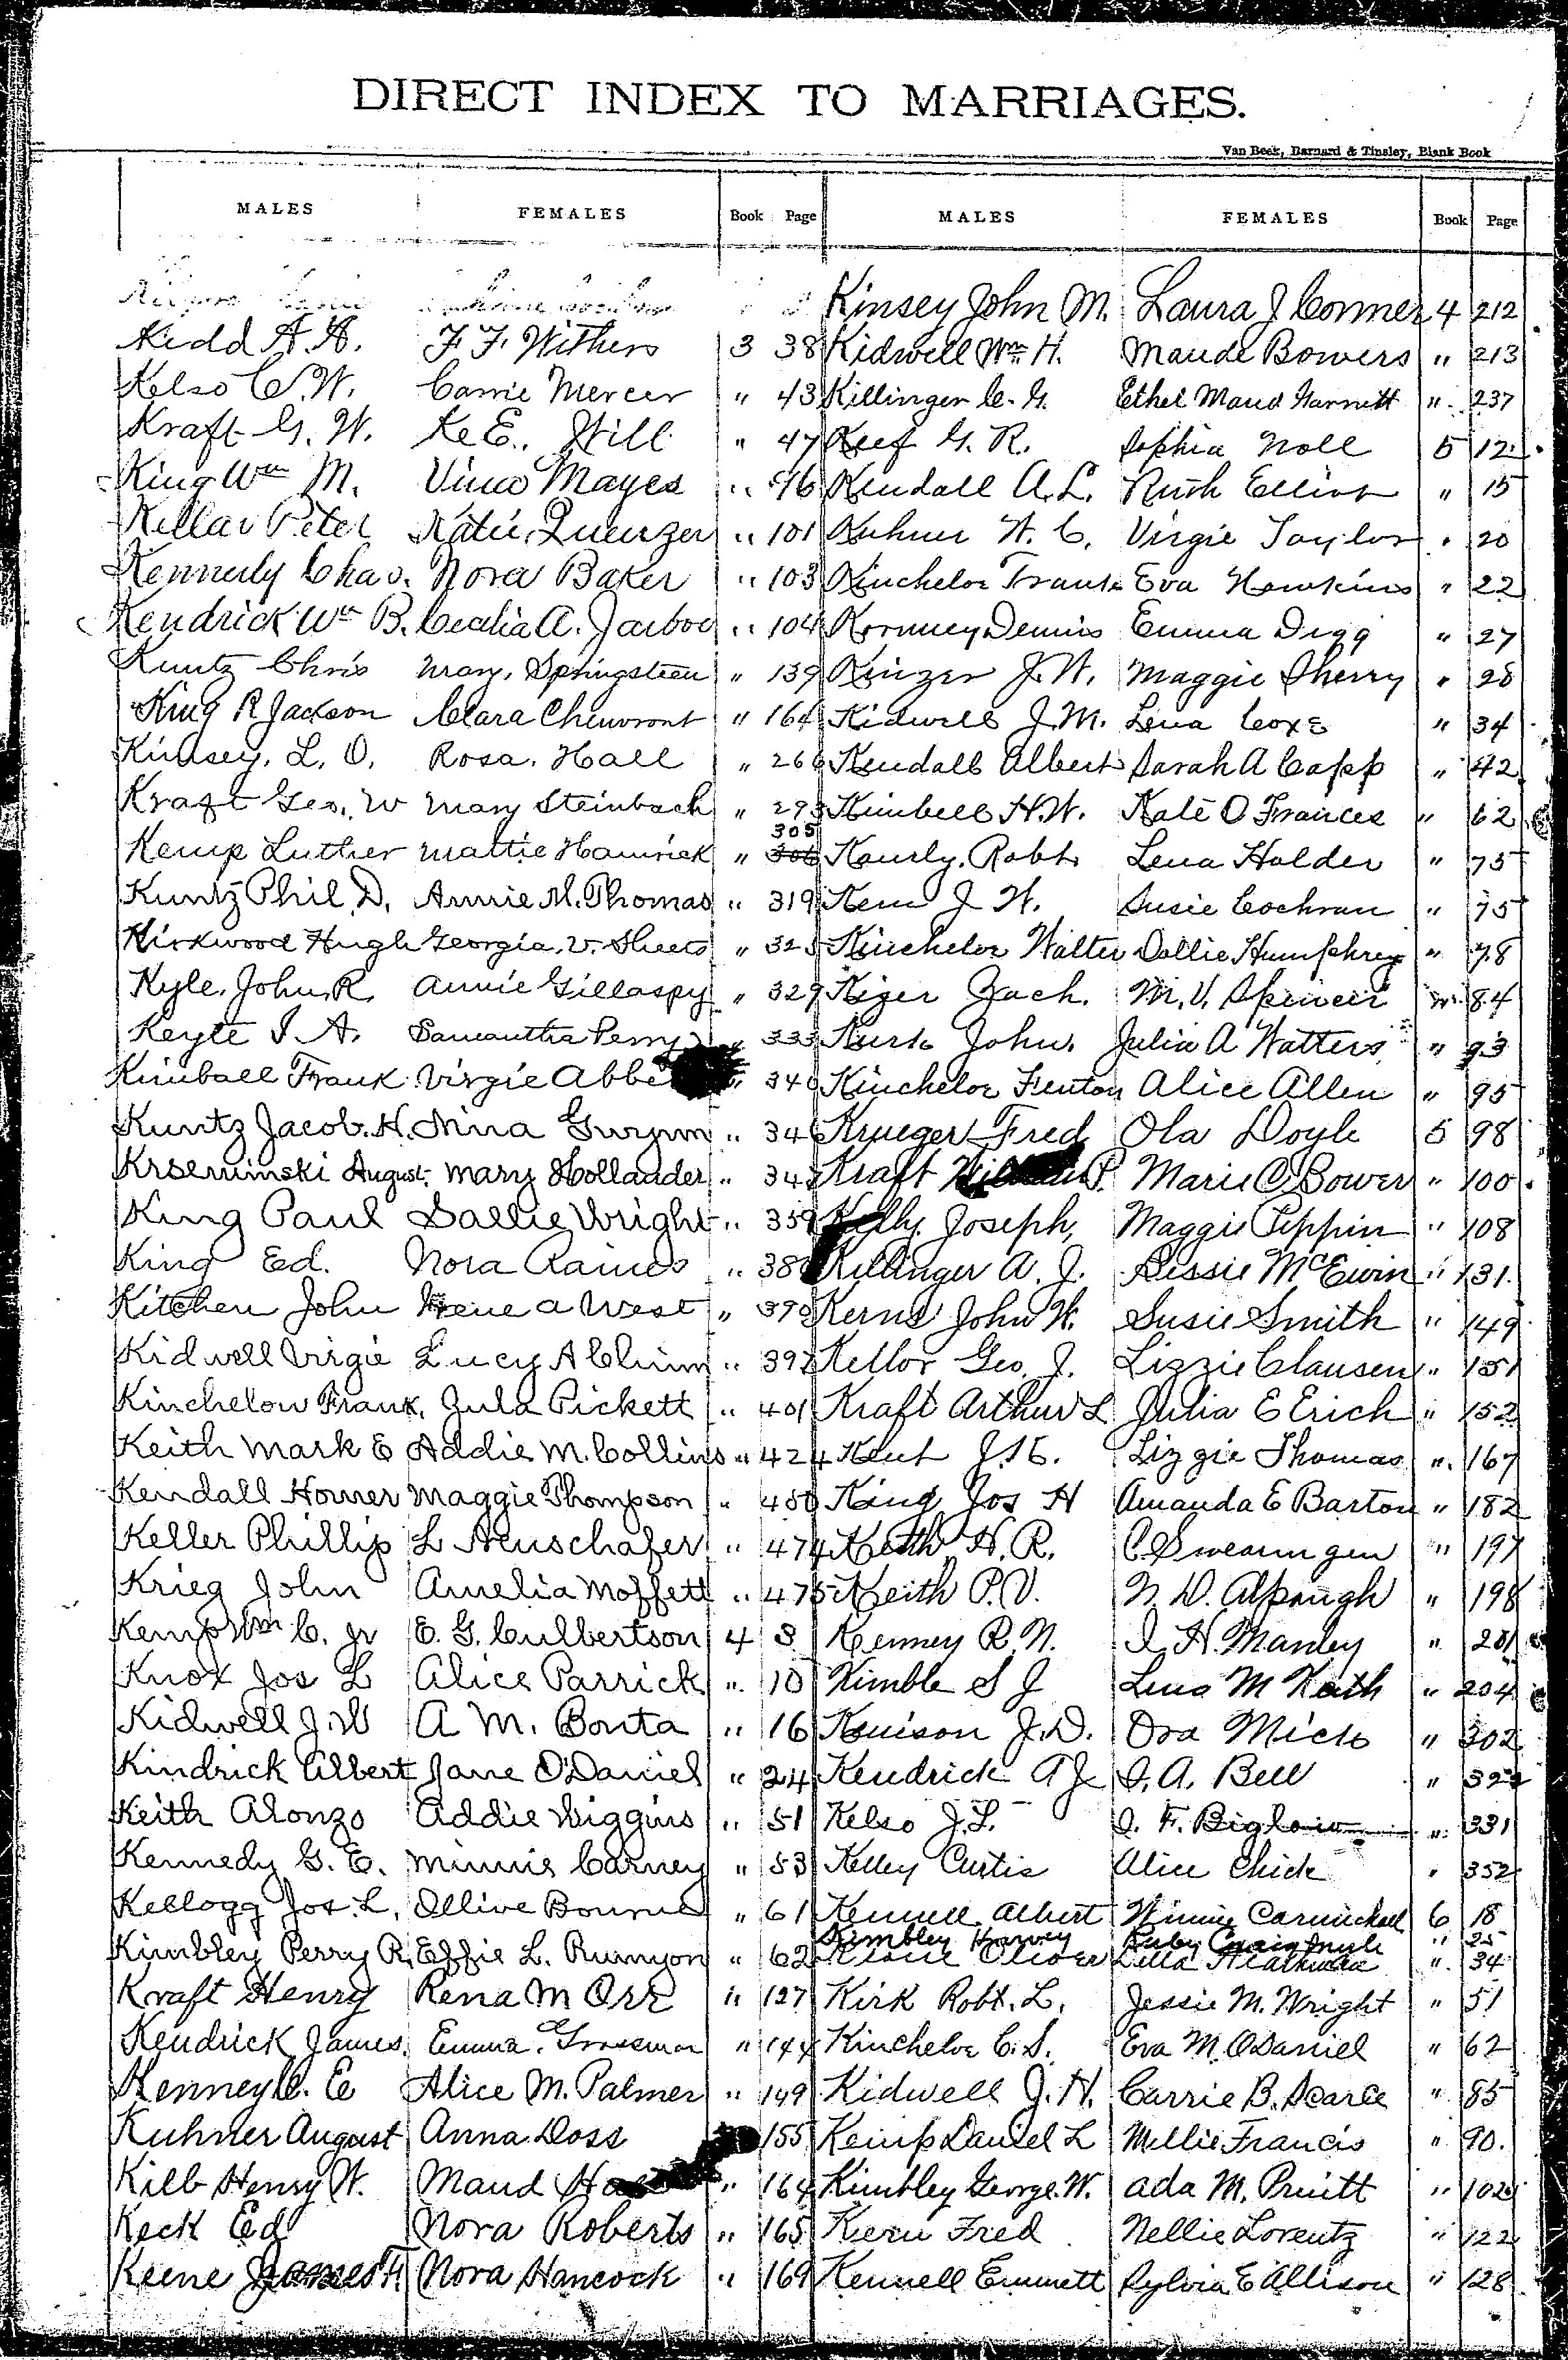 DIRECT INDEX TO MARRIAGES.
Van Beek, Barnard & Tinsley, Blank Book
MALES FEMALES Book Page MALES FEMALES Book Page
Kinsey John M. Laura J Conner 4 212
Kidd A. A. F. F. Withers 3 38 Kidwell Wm H. Maude Bowers " 213
Kelso C. W. Carrie Mercer " 43 Killinger C. G. Ethel Maud Garnett " 237
Kraft G. W. Ke E. Will " 47 Keef G. R. Sophia Noll 5 12
King Wm M. Vina Mayes " 96 Kendall A. L. Ruth Elliott " 15
Kellar Peter Katie Quenzer " 101 Kuhner W. C. Virgie Taylor " 20
Kennerly Chas. Nora Baker " 103 Kincheloe Frank Eva Hawkins " 22
Kendrick Wm B. Cecalia A. Jarboe " 104 Dennis Emma Digg " 27
Kuntz Chris Mary Springsteen " 139 Kinzer J. W. Maggie Sherry " 28
King R Jackson Clara Cheuvront " 164 Kidwell J. M. Lena Coxe " 34
Kimsey, L. O. Rosa Hall " 266 Kendall Albert Sarah A Capp " 42
Kraft Geo. W Mary Steinbach " 293 Kimbell H. W. Kate O Frances " 62
Kemp Luther Mattie Hamrick " 305 306 Robt. Lena Holder " 75
Kuntz Phil. D. Annie M. Thomas " 319 Kern J. W. Susie Cochran " 75
Kirkwood Hugh Georgia V. Sheets " 325 Kincheloe Walter Dollie Humphrey " 78
Kyle, John R. Annie Gillaspy " 329 Kizer Zach. M. V. Spencer " 84
Keyte I A. Samantha Perry " 333 John Julia A Watters " 93
Kimball Frank Virgie " 340 Kincheloe Fenton Alice Allen " 95
Kuntz Jacob. H. Nina Gwynn " 346 Krueger Fred Ola Doyle 5 98
Krseminski August Mary Hollander " 34 Kraft P. Marie C Bower " 100
King Paul Sallie Wright " 359 Kelly Joseph, Maggie Pippin " 108
King Ed. Nora Raines " 38 Killinger A. J. Bessie McEwin " 131
Kitchen John Irene A West " 390 Kerns John W. Susie Smith " 149
Kidwell Virgie Lucy A Chinn " 392 Kellor Geo. J. Lizzie Clausen " 151
Kinchelow Frank, Zula Pickett " 401 Kraft Arthur L Julia E Erich " 152
Keith Mark E Addie M. Collins " 424 Kent J. E. Lizzie Thomas " 167
Kendall Homer Maggie Thompson " 450 King Jos H Amanda E Barton " 182
Keller Phillip L Neuschafer " 474 Keith H. R. C Swearingen " 197
Krieg John Amelia Moffett " 475 Keith P. V. N. D. Alspaugh " 198
Kemp Wm C. Jr E. G. Culbertson 4 3 Kenney R. N. I. H. Manley " 201
Knox Jos L Alice Parrick " 10 Kimble S J Lena M Keith " 204
Kidwell J. W A M. Bonta " 16 Kenison J. D. Ora Mick " 302
Kindrick Albert Jane O'Daniel " 24 Kendrick A J I. A. Bell " 322
Keith Alonzo Addie Wiggins " 51 Kelso J. L. I. F. Biglow " 331
Kennedy G. E. Minnie Carney " 53 Kelley Curtis Alice Chick " 352
Kellogg Jos. L. Ollive Bourne " 61 Kennell Albert Winnie Carmichael 6 18
Kimbley Harvey Ruby " 25
Kimbley Perry R. Effie L. Runyon " 62 Oliver Della " 34
Kraft Henry Rena M Orr " 127 Kirk Robt. L. Jessie M. Wright " 51
Kendrick James Emma Grossman " 144 Kincheloe C. S. Eva M. O'Daniel " 62
Kenney C. E Alice M. Palmer " 149 Kidwell J. H. Carrie B. Searce " 85
Kuhner August Anna Doss 155 Kemp Daniel L Mellie Francis " 90
Kilb Henry W. Maud " 164 Kimbley George W. Ada M. Pruitt " 102
Keck Ed Nora Roberts " 165 Kern Fred Nellie Lorentz " 122
Keene James F. Nora Hancock " 169 Kennell Emmett Sylvia E Allison " 128